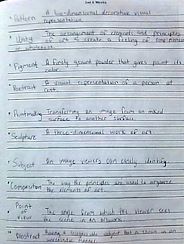 Pattern A two-dimensional decorative visual
repetition
Unity The arrangement of elements and principles
of art to create a feeling of completeness
or wholeness.
Pigment A finely ground powder that gives paint its
color
Portrait A visual representation of a person at
rest
Printmaking Transferring an image from an inked
surface to another surface
Sculpture A three-dimensional work of art
Subject An image viewers can easily identify.
Composition The way the principles are used to organize
the elements of art.
Point of view The angle from which the viewer sees
the scene in an artwork
Abstract having a recognizable subject that is shown in an
unrealistic manner.